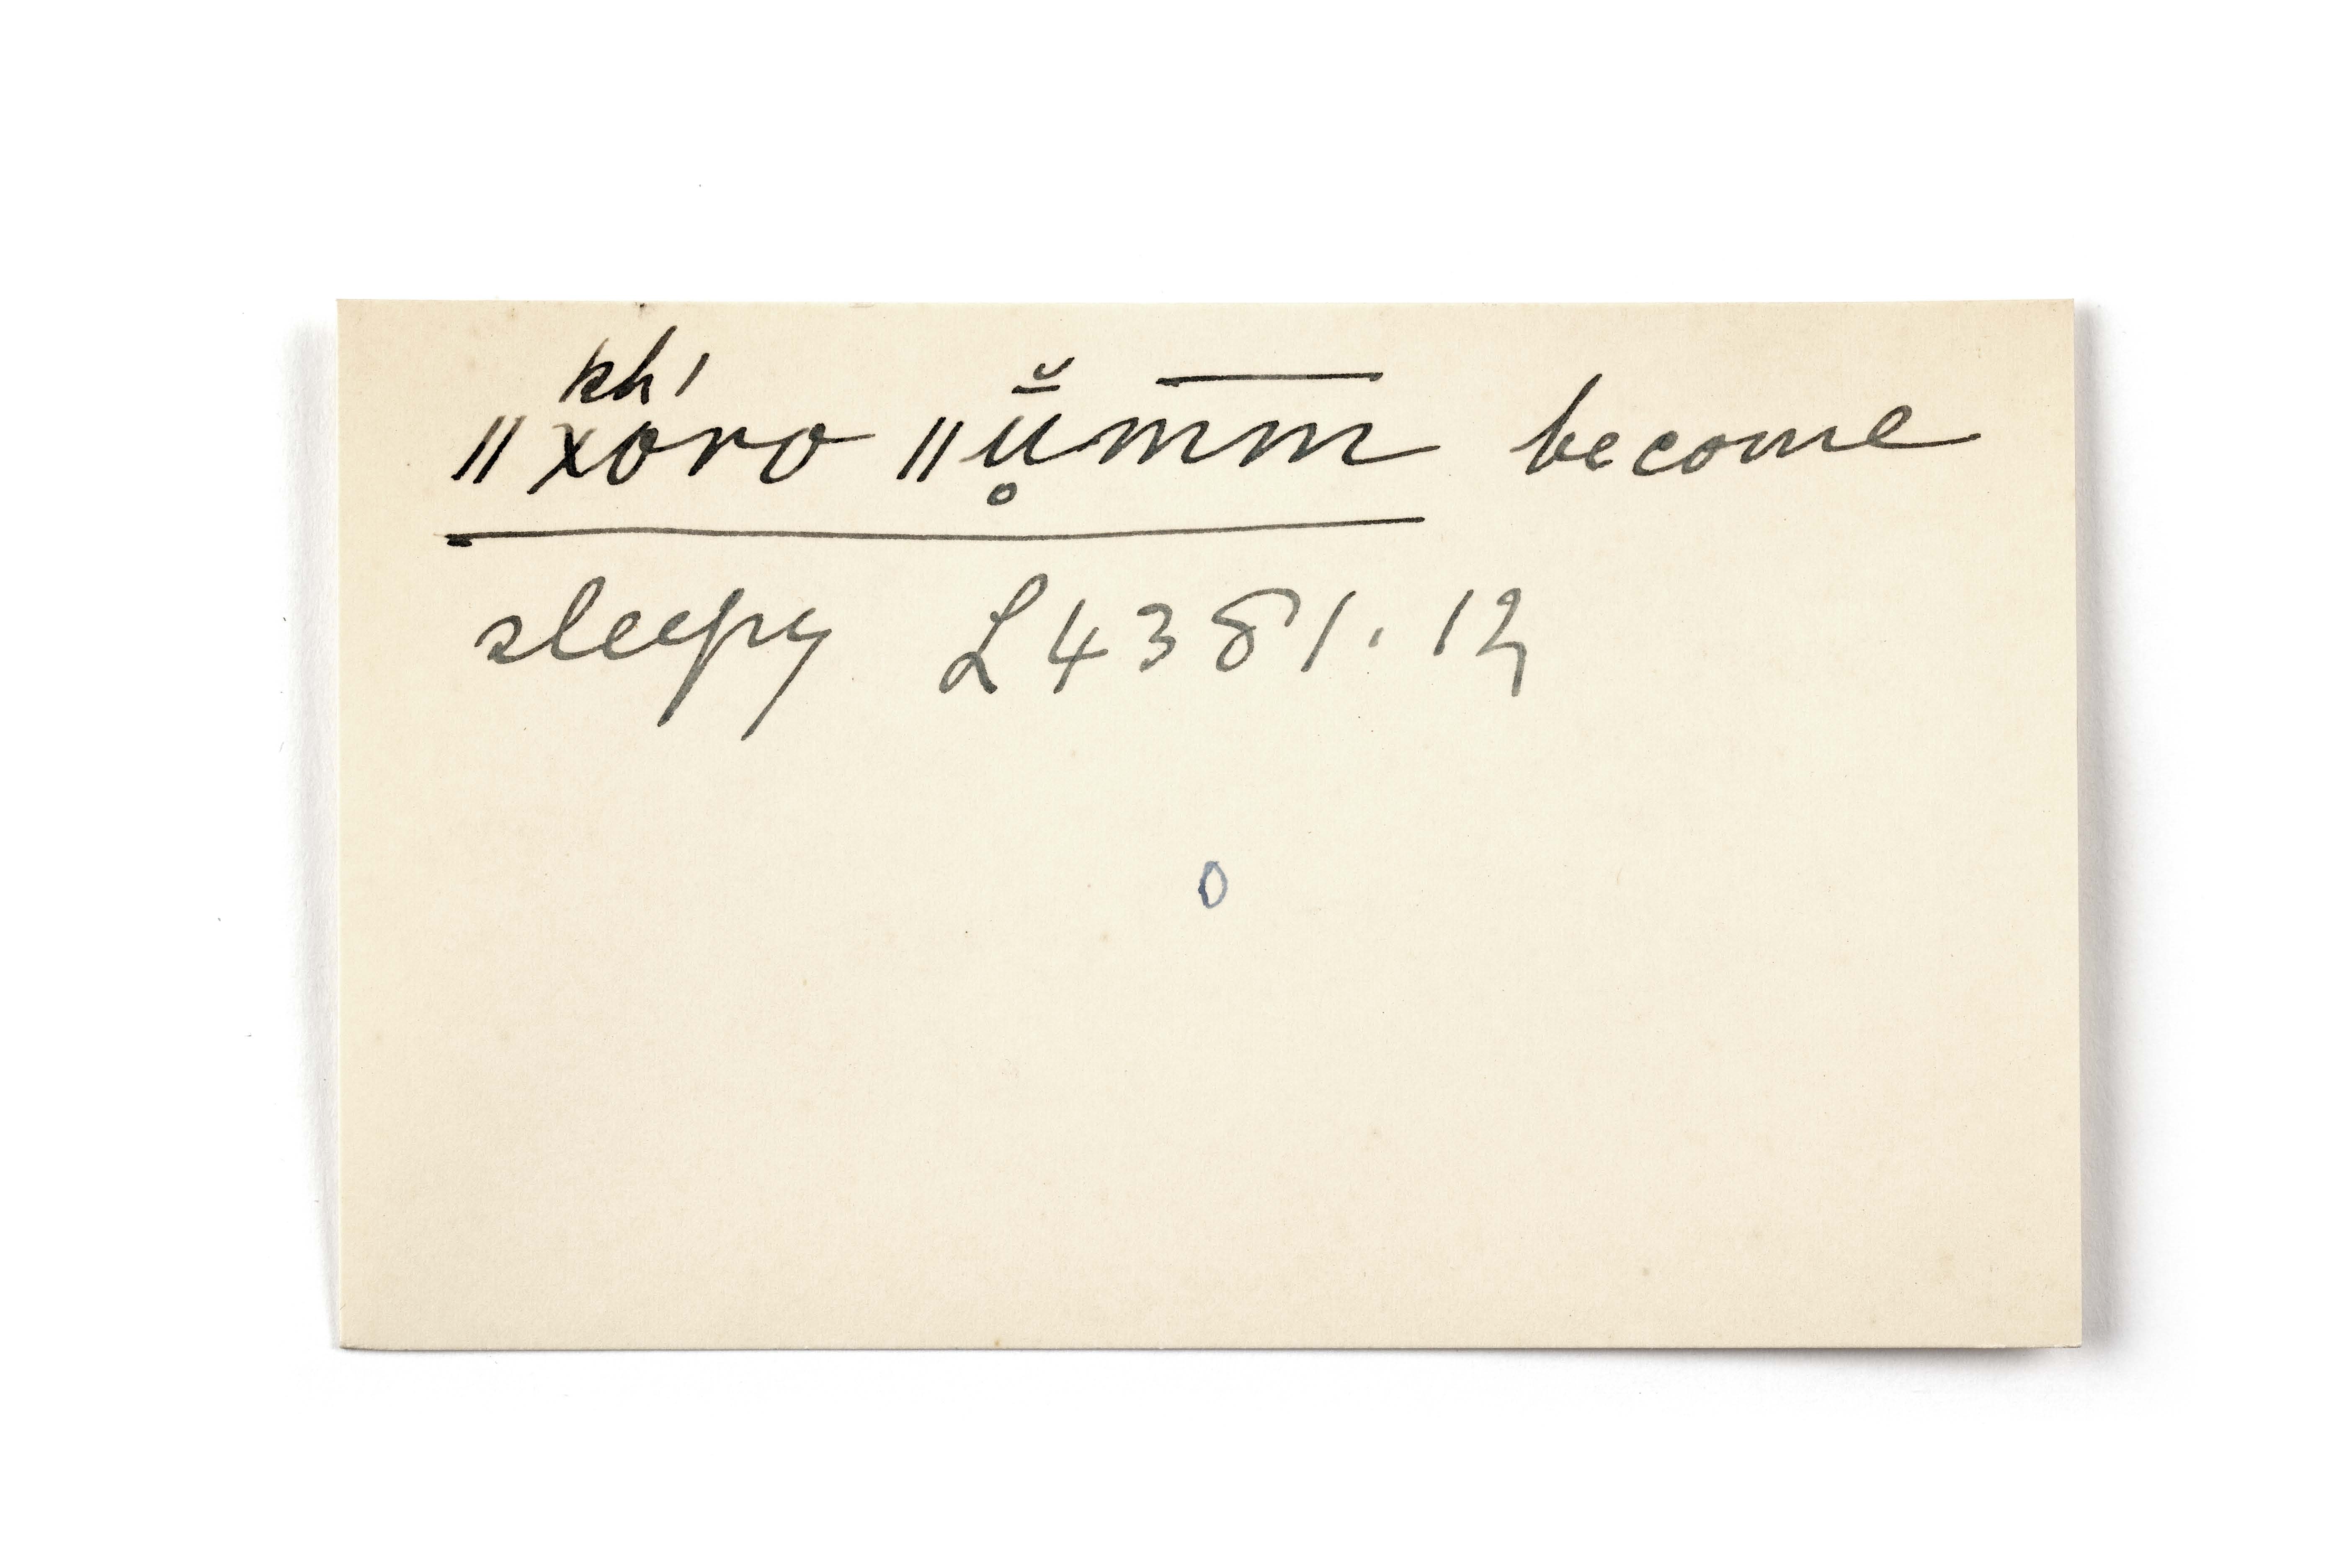 kh'
ǁxoro ǁū̥̆m͞m become
sleepy L 4381.12
0